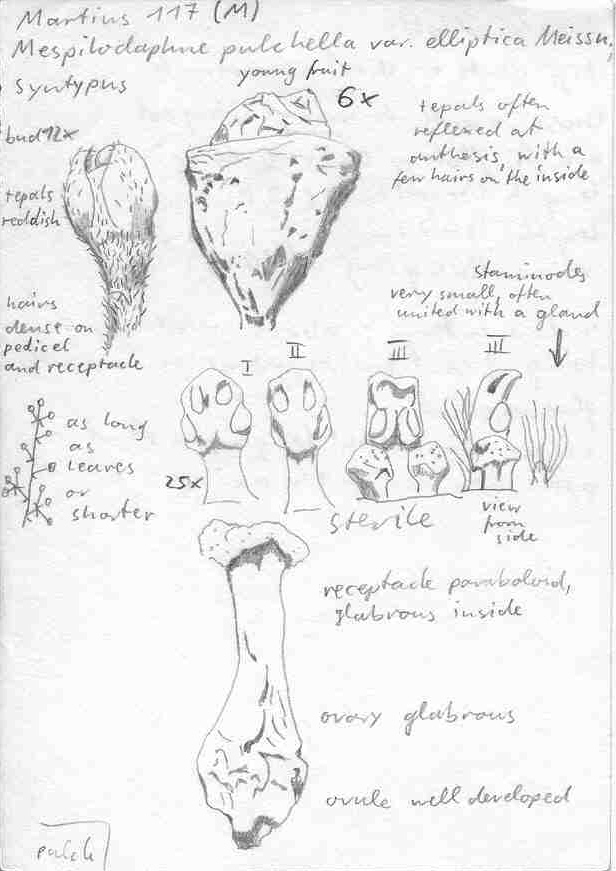 Martius 117 (M)
Mespilodaphne pulchella var. elliptica Meissn,
syntypus
young fruit
6x
tepals often
reflexed at
anthesis, with a
few hairs on the inside
bud 12x
tepals
reddish
hairs
dense on
pedicel
and receptacle
staminodes
very small, often
united with a gland
I
II
III
III
as long
as
leaves
or
shorter
25x
sterile
view
from
side
receptacle paraboloid,
glabrous inside
ovary glabrous
ovule well developed
pulch